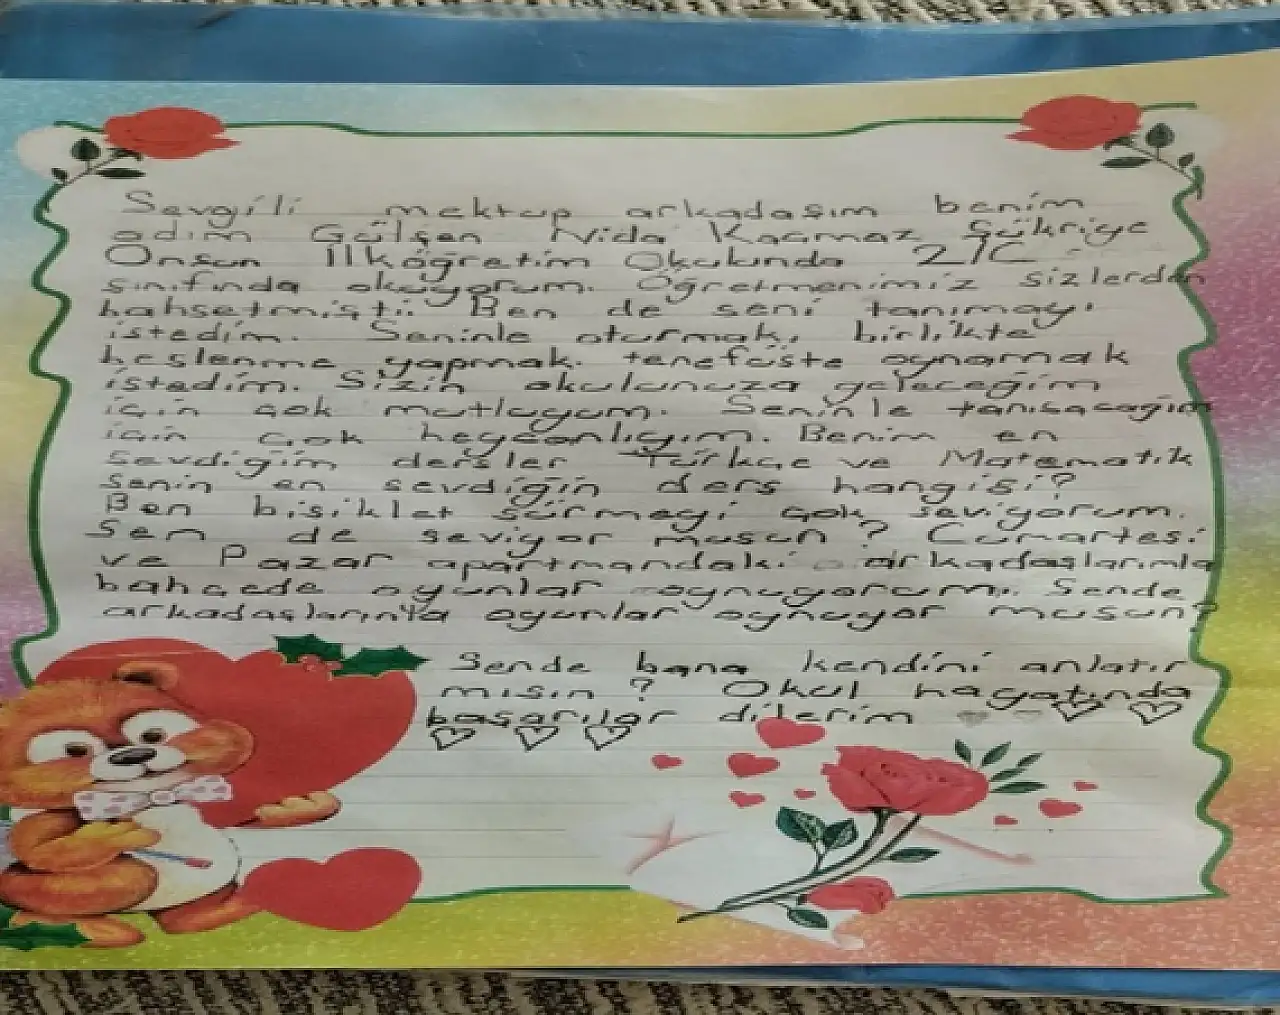 Sevgili mektup arkadaşım benim
adım Gülşen Nida Kaçmaz Şükriye
Onsun İlköğretim Okulunda 2/C
sınıfında okuyorum. Öğretmenimiz sizlerden
bahsetmişti. Ben de seni tanımayı
istedim. Seninle oturmak, birlikte
beslenme yapmak. tenefüste oynamak
istedim. Sizin okulunuza geleceğim
için çok mutluyum. Seninle tanışacağım
için çok heycanlıyım. Benim en
sevdiğim dersler Türkçe ve Matematik
senin en sevdiğin ders hangisi?
Ben bisiklet sürmeyi çok seviyorum.
Sen de seviyor musun? Cumartesi
ve Pazar apartmandaki arkadaşlarımla
bahçede oyunlar oynuyorum. Sende
arkadaşlarınla oyunlar oynuyor musun?
Sende bana kendini anlatır
mısın? Okul hayatında
başarılar dilerim